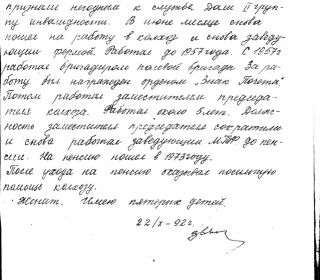 признали негодным к службе. Дали II груп-
пу инвалидности. В июне месяце снова
пошел на работу в колхоз и снова заведу-
ющим фермой. Работал до 1957 года. С 1957 г
работал бригадиром полевой бригады. За ра-
боту был награжден орденом "Знак Почета"
Потом работал заместителем председа-
теля колхоза. Работал около 5 лет. Долж-
ность заместителя председателя сократили
и снова работал заведующим МТФ до пен-
сии. На пенсию пошел в 1973 году.
После ухода на пенсию оказывал посильную
помощь колхозу.
Женат. Имею пятерых детей.
22/X-92г.